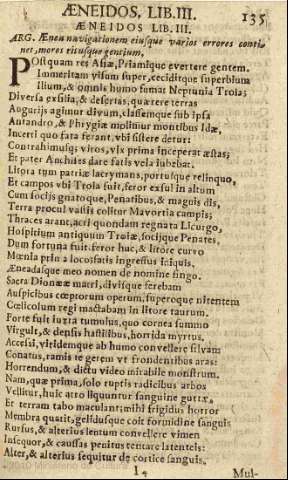 ÆNEIDOS, LIB. III. 135
ÆNEIDOS, LIB. III.
ARG. Æneæ navigationem ejusque varios errores conti-
net, mores ritusque gentium.
POstquam res Asiæ, Priamique evertere gentem.
Immeritam visum super, ceciditque superbum
Ilium, & omnis humo fumat Neptunia Troia;
Diversa exsilia, & desertas, quærere terras
Auguriis agimur divum, classemque sub ipsa
Antandro, & Phrygiæ molimur montibus Idæ,
Incerti quo fata ferant, ubi sistere detur:
Contrahimusq; viros, vix prima inceperat æstas;
Et pater Anchises dare fatis vela jubebat.
Litora tum patriæ lacrymans, portusque relinquo,
Et campos ubi Troia fuit, feror exsul in altum
Cum sociis gnatoque, Penatibus, & magnis dis,
Terra procul vastis colitur Mavortia campis;
Thraces arant, acri quondam regnata Licurgo,
Hospitium antiquum Troiæ, sociique Penates,
Dum fortuna fuit: feror huc, & litore curvo
Mœnia prima loco fatis ingressus iniquis.
Æneadasque meo nomen de nomine fingo.
Sacra Dionææ matri, divisque ferebam
Auspicibus cœptorum operum, superoque nitentem
Cœlicolum regi mactabam in litore taurum.
Forte fuit juxta tumulus, quo cornea summo
Virgult, & densis hastilibus, horrida myrtus.
Accessi, viridemque ab humo convellere silvam
Conatus, ramis tegerem ut frondentibus aras:
Horrendum, & dictu video mirabile monstrum.
Nam, quæ prima, solo ruptis radicibus arbos
Vellitur, huic atro liquuntur sanguine guttæ,
Et terram tabo maculant: mihi frigidus horror
Membra quatit, gelidusque coit formidine sanguis
Rursus, & alterius lentum convellere vimen
Insequor, & caussas penitus tentare latenteis:
Alter, & alterius sequitur de cortice sanguis.
I 4 Mul-
©2010 Ministerio de Cultura